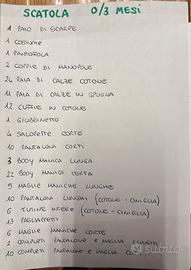 SCATOLA 0/3 MESI
1 PAIO DI SCARPE
1 COSTUME
1 PANTOFOLA
2 COPPIE DI MANOPOLE
24 PAIA DI CALZE COTONE
11 PAIA DI CALZE IN SPUGNA
12 CUFFIE IN COTONE
1 GIUBBINETTO
4 SALOPETTE CORTE
10 PANTALONI CORTI
3 BODY MANICA LUNGA
22 BODY MANICA CORTA
9 MAGLIE MANICHE LUNGHE
10 PANTALONI LUNGHI (COTONE - CINIGLIA)
6 TUTINE INTERE (COTONE - CINIGLIA)
13 PAGLIACCETTI
6 MAGLIE MANICHE CORTE
2 COMPLETI PANTALONE E MAGLIA
10 COMPLETI PANTALONE E MAGLIA
subito